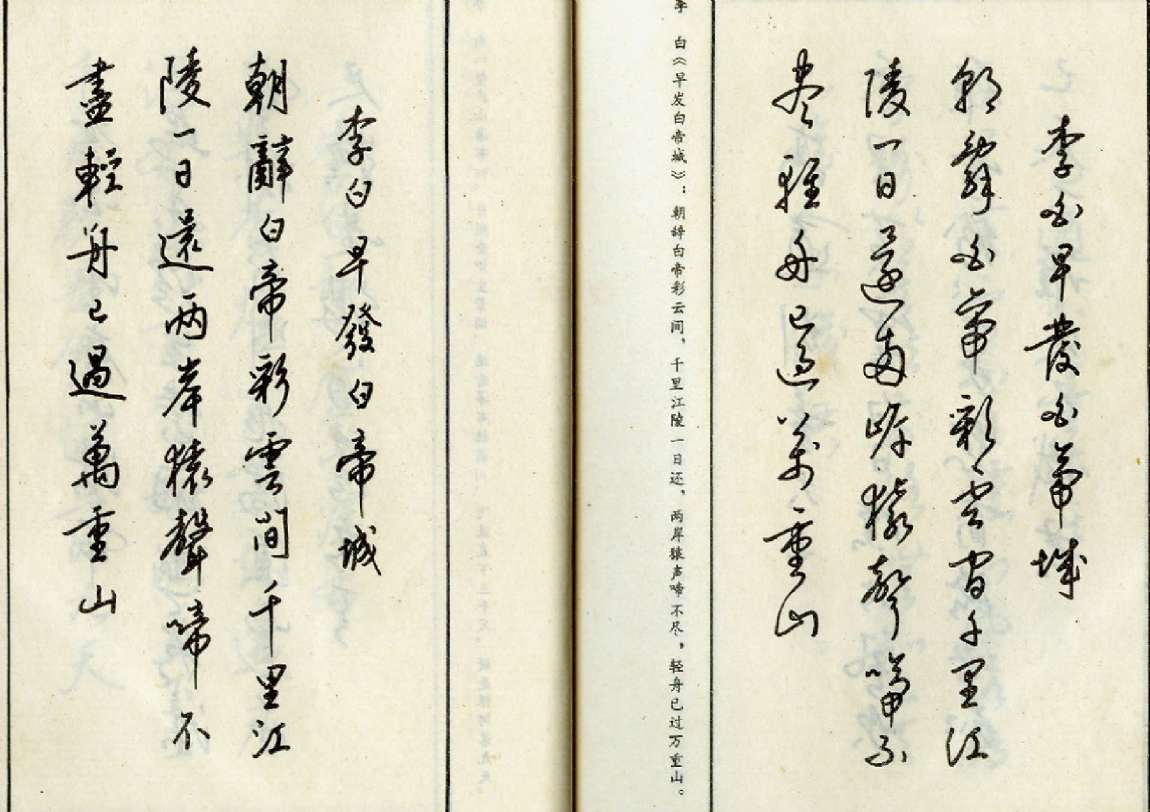 李白早發白帝城
朝辭白帝彩雲間千里江
陵一日還兩岸猿聲啼不
盡輕舟已過萬重山
李白《早发白帝城》：朝辞白帝彩云间，千里江陵一日还，两岸猿声啼不尽，轻舟已过万重山。
李白早發白帝城
朝辭白帝彩雲間千里江
陵一日還兩岸猿聲啼不
盡輕舟已過萬重山